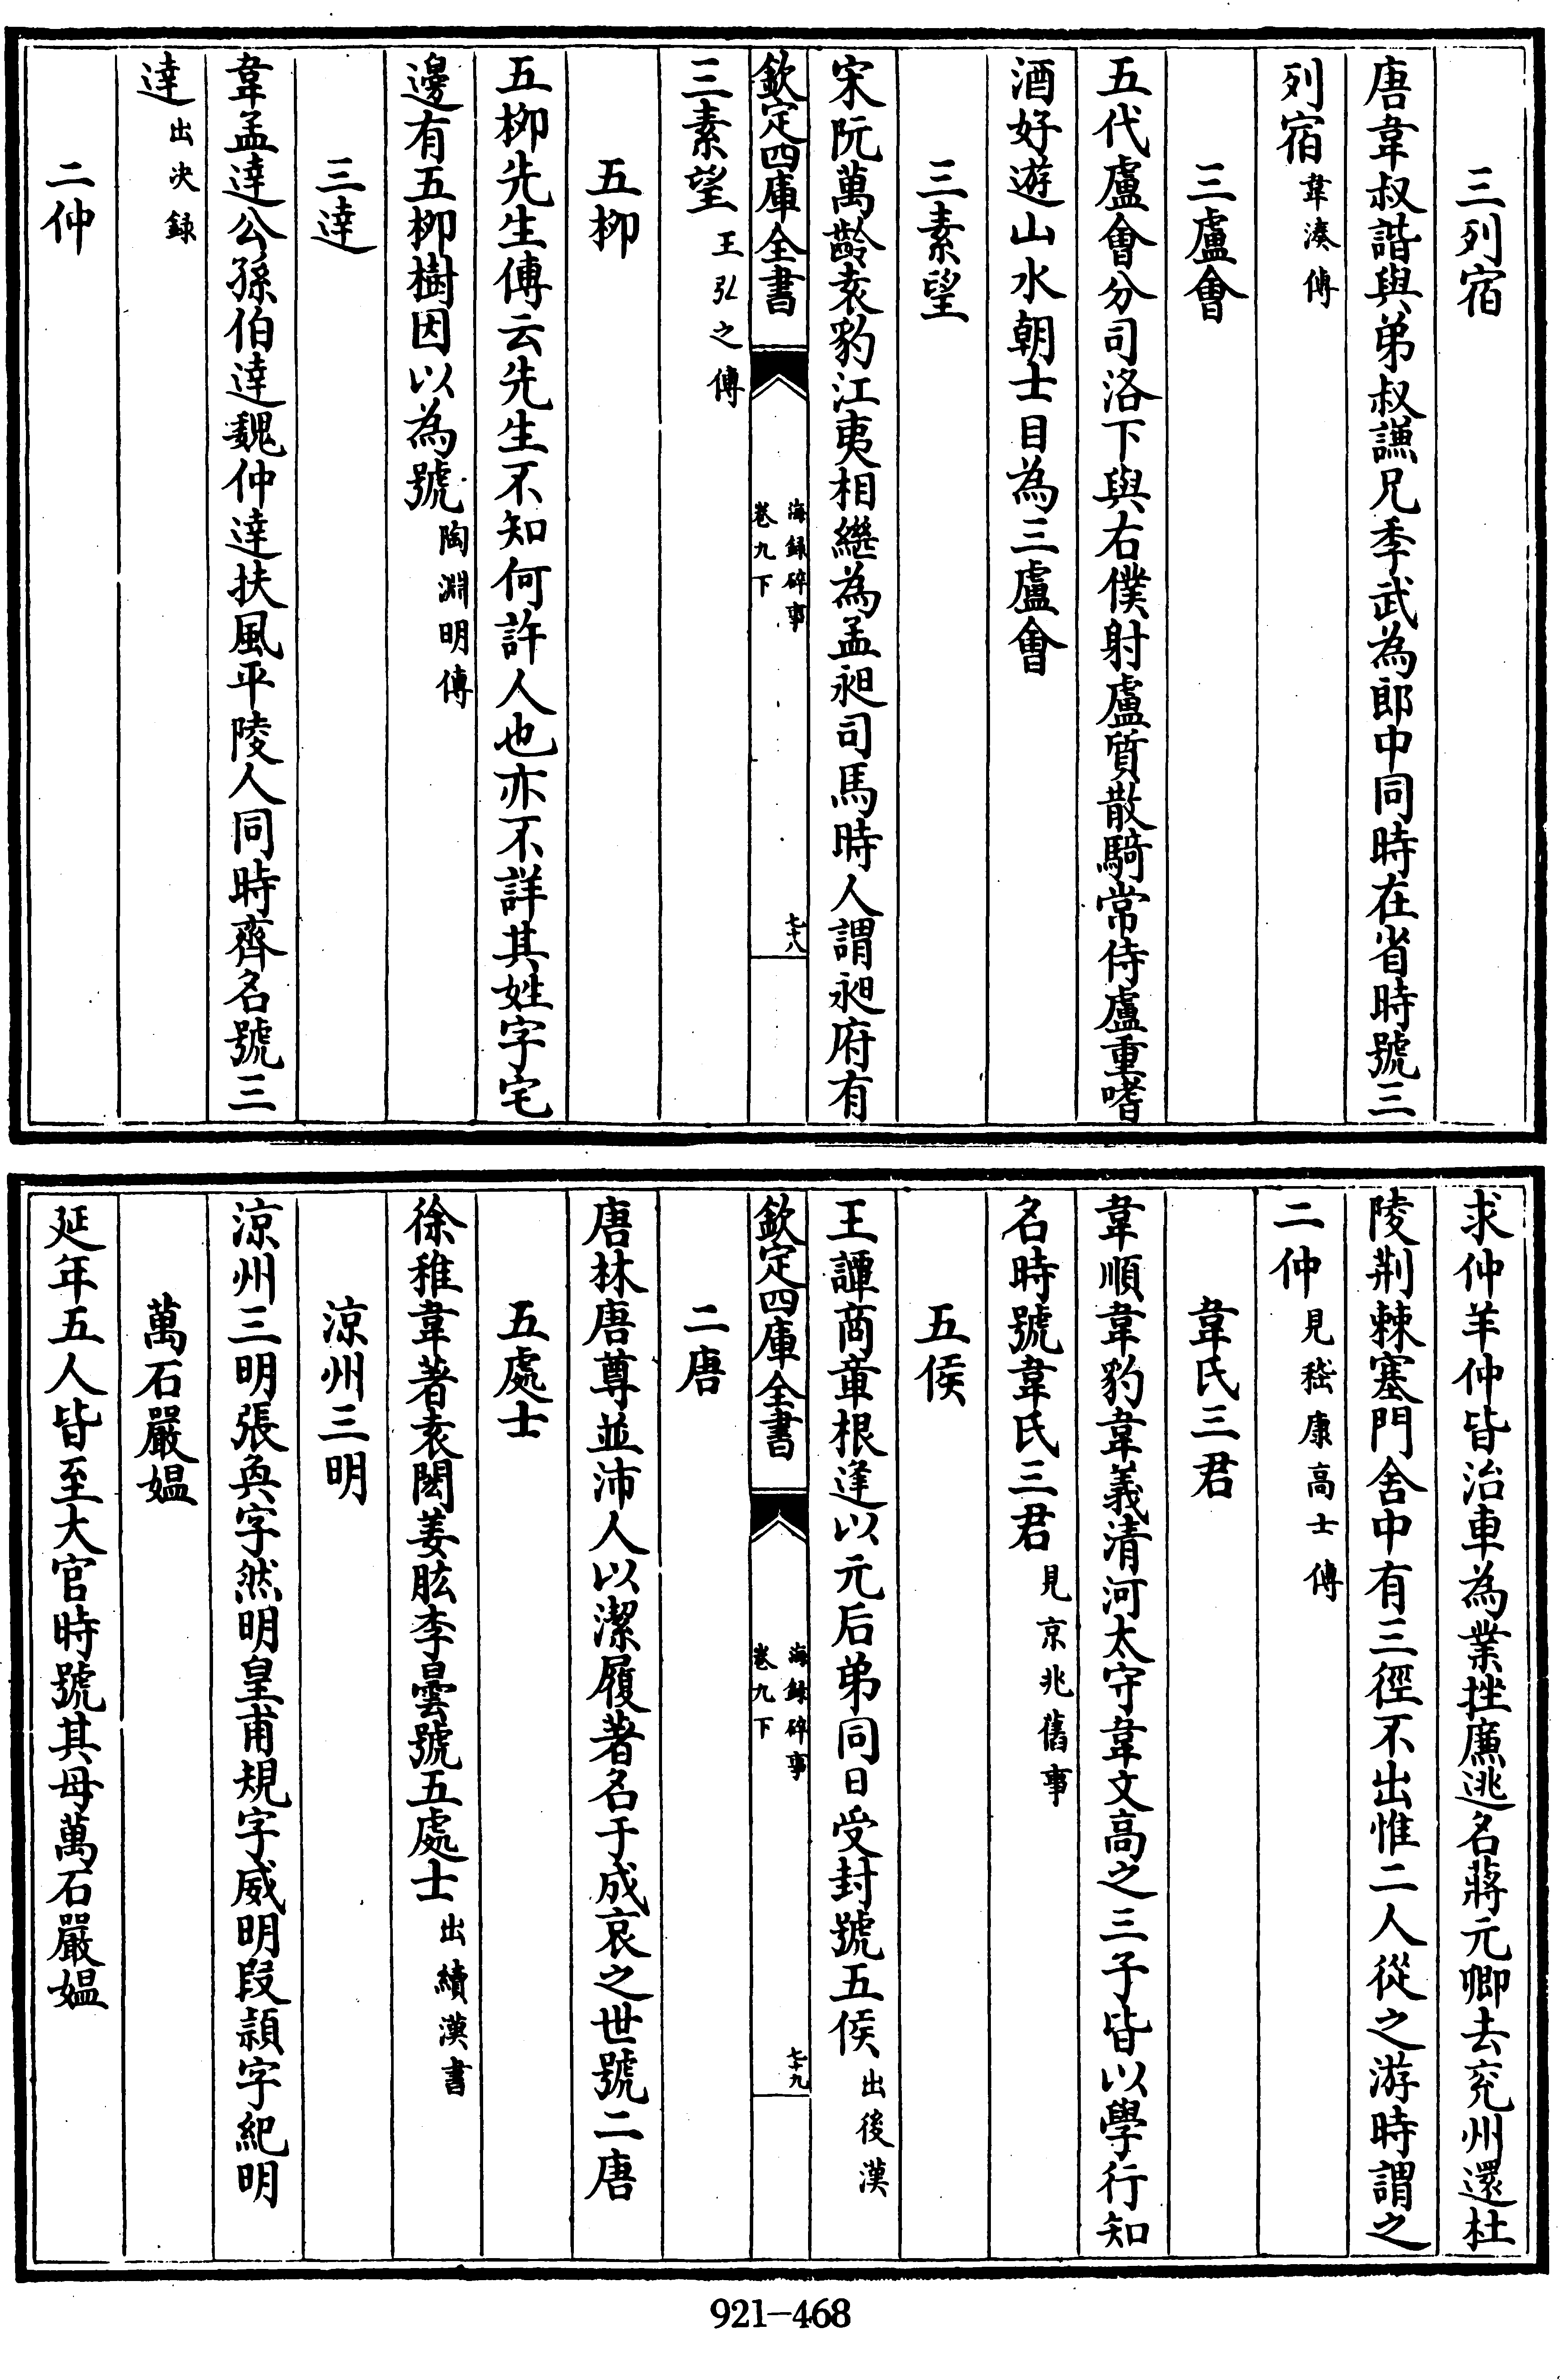 三列宿
唐韋叔諧與弟叔謙兄季武為郎中同時在省時號三
列宿韋湊傳
三盧會
五代盧會分司洛下與右僕射盧質散騎常侍盧重嗜
酒好遊山水朝士目為三盧會
三素望
宋阮萬齡袁豹江夷相繼為孟昶司馬時人謂昶府有
欽定四庫全書
海録碎事
卷九下
七十八
三素望王弘之傳
五栁
五栁先生傳云先生不知何許人也亦不詳其姓字宅
邊有五栁樹因以為號陶淵明傳
三達
韋孟達公孫伯達魏仲達扶風平陵人同時齊名號三
達出决録
二仲
求仲羊仲皆治車為業挫廉逃名蔣元卿去兖州還杜
陵荆棘塞門舍中有三徑不出惟二人從之游時謂之
二仲見嵇康高士傳
韋氏三君
韋順韋豹韋義清河太守韋文高之三子皆以學行知
名時號韋氏三君見京兆舊事
五侯
王譚商章根逢以元后弟同日受封號五侯出後漢
欽定四庫全書
海録碎事
卷九下
七十九
二唐
唐林唐尊並沛人以潔履著名于成哀之世號二唐
五處士
徐稚韋著袁閎姜肱李曇號五處士出續漢書
涼州三明
涼州三明張奐字然明皇甫規字威明段熲字紀明
萬石嚴媪
延年五人皆至大官時號其母萬石嚴媪
921-468